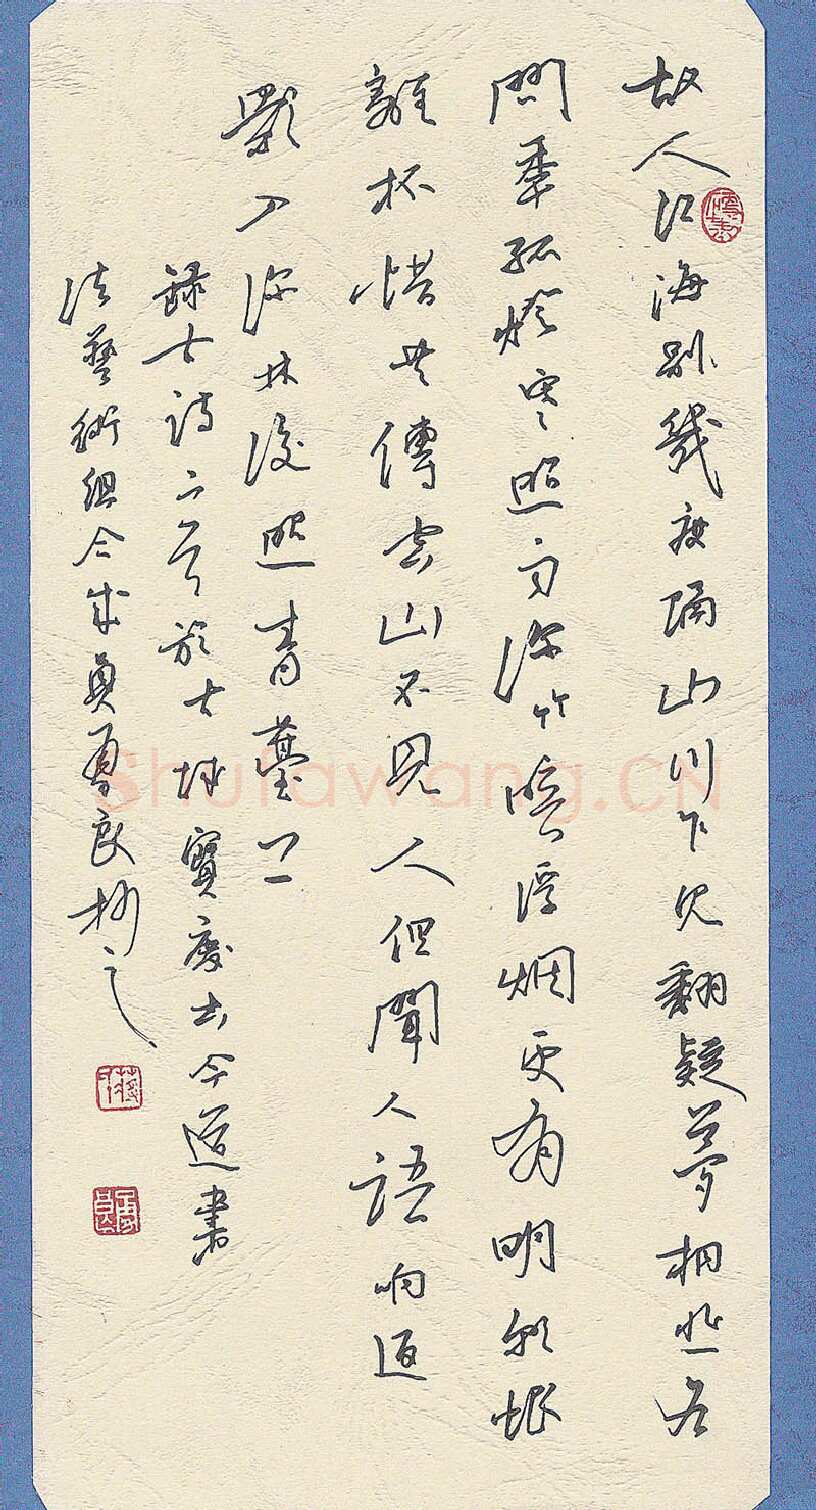 故人江海别幾度隔山川乍見翻疑夢相悲各
問年孤燈寒照雨深竹暗浮烟更有明朝恨
離杯惜共傳空山不見人但聞人語响返
影入深林復照青薹上
録古詩二首於古城寶慶古今道書
法藝術組合成員勇良抄之
Shufawang.CN